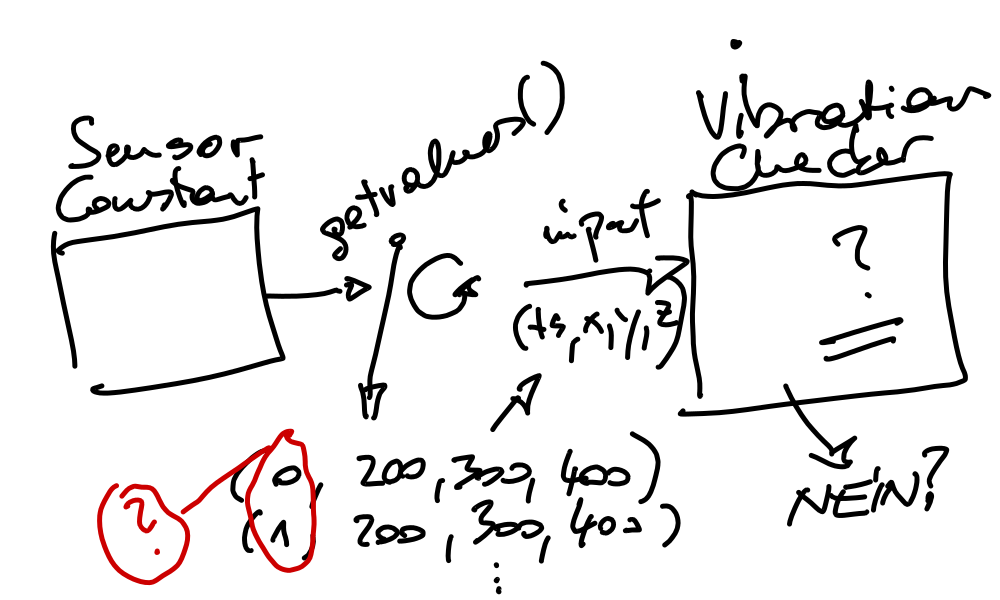 Sensor
Constant
getvalues()
input
(ts, x, y, z)
Vibration
Checker
?
(0, 200, 300, 400)
(1, 200, 300, 400)
⋮
?
NEIN?